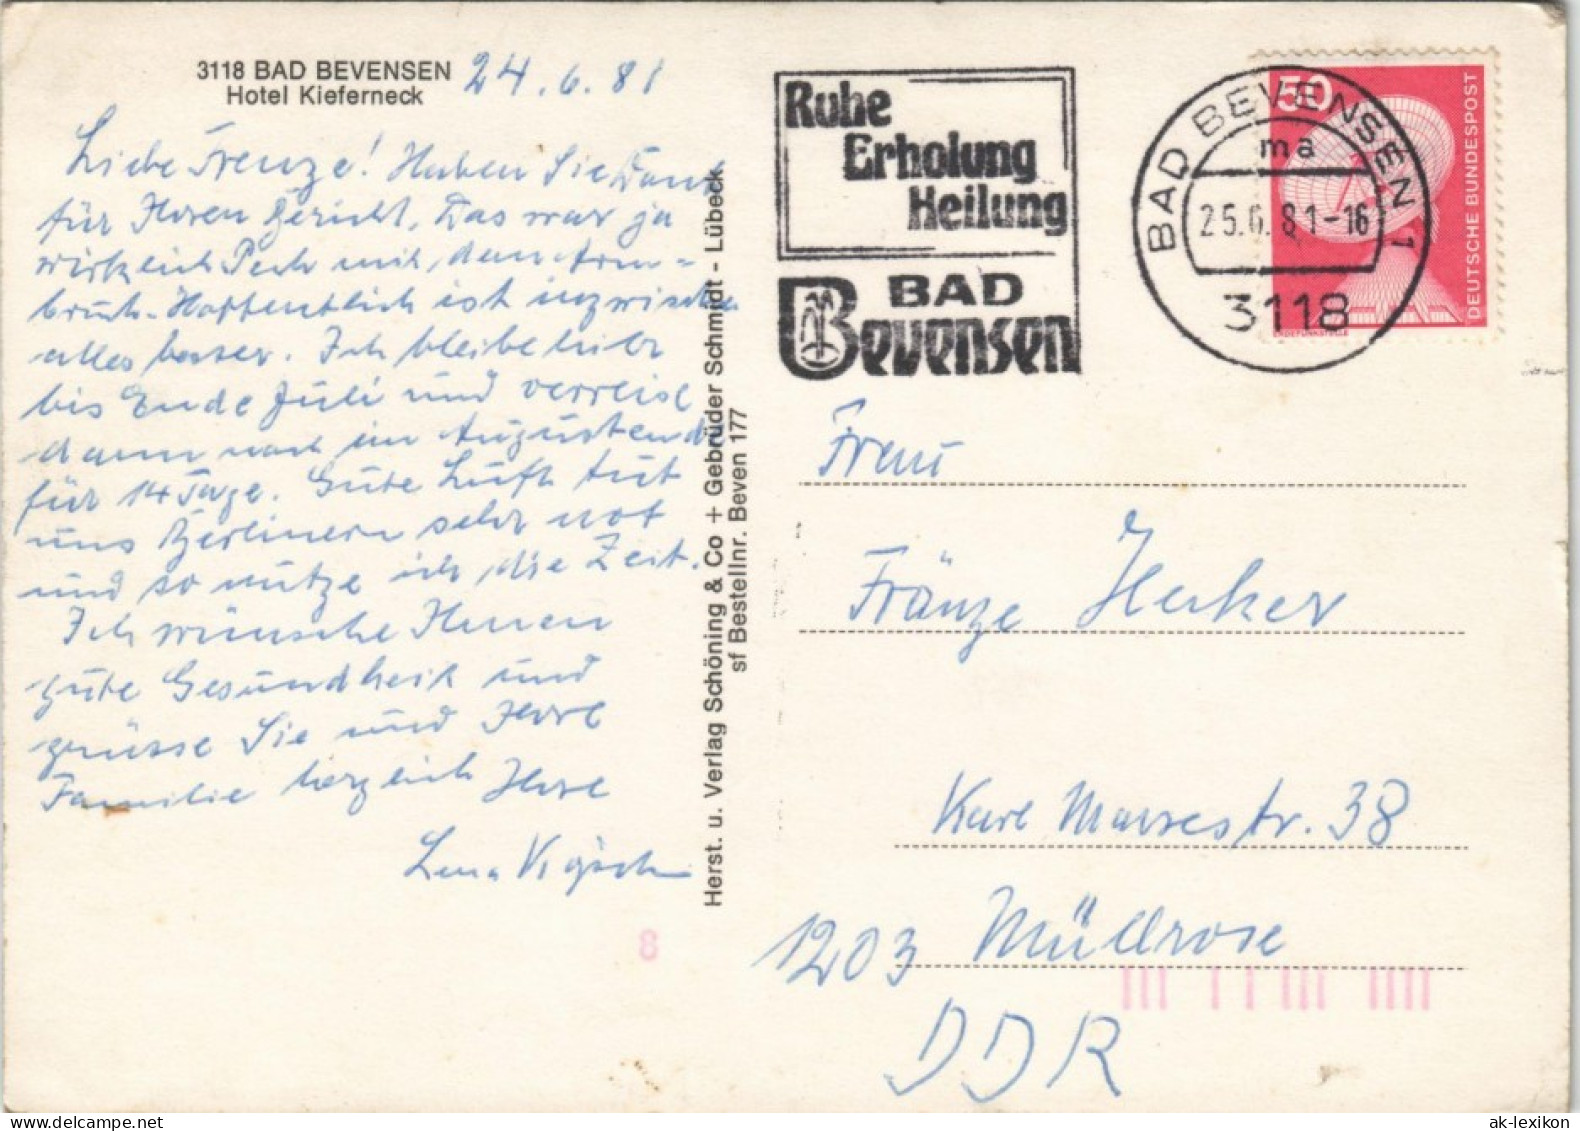 3118 BAD BEVENSEN
Hotel Kieferneck
24.6.81
Liebe Frenze! Haben Sie Dank
für Ihren Bericht. Das war ja
wirklich Pech mit dem Arm=
bruch. Hoffentlich ist inzwischen
alles besser. Ich bleibe hier
bis Ende Juli und verreise
dann noch im Augustend
für 14 Tage. Gute Luft tut
uns Berlinern sehr not
und so nutze ich die Zeit.
Ich wünsche Ihnen
gute Gesundheit und
grüsse Sie und Ihre
Familie herzlich Ihre
Lena
Herst. u. Verlag Schöning & Co + Gebrüder Schmidt - Lübeck
sf Bestellnr. Beven 177
8
Ruhe
Erholung
Heilung
BAD
Bevensen
BAD BEVENSEN 1
ma
25.6.81-16
3118
50
DEUTSCHE BUNDESPOST
ERDEFUNKSTELLE
Frau
Fränze Hecker
Karl Marxestr. 38
1203 Müllrose
DDR
ak-lexikon